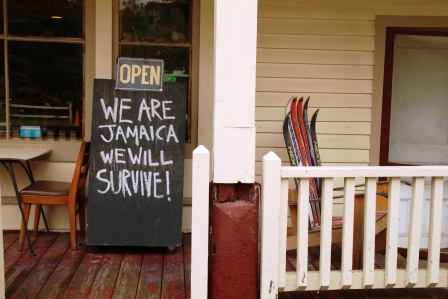 OPEN
WE ARE
JAMAICA
WE WILL
SURVIVE!